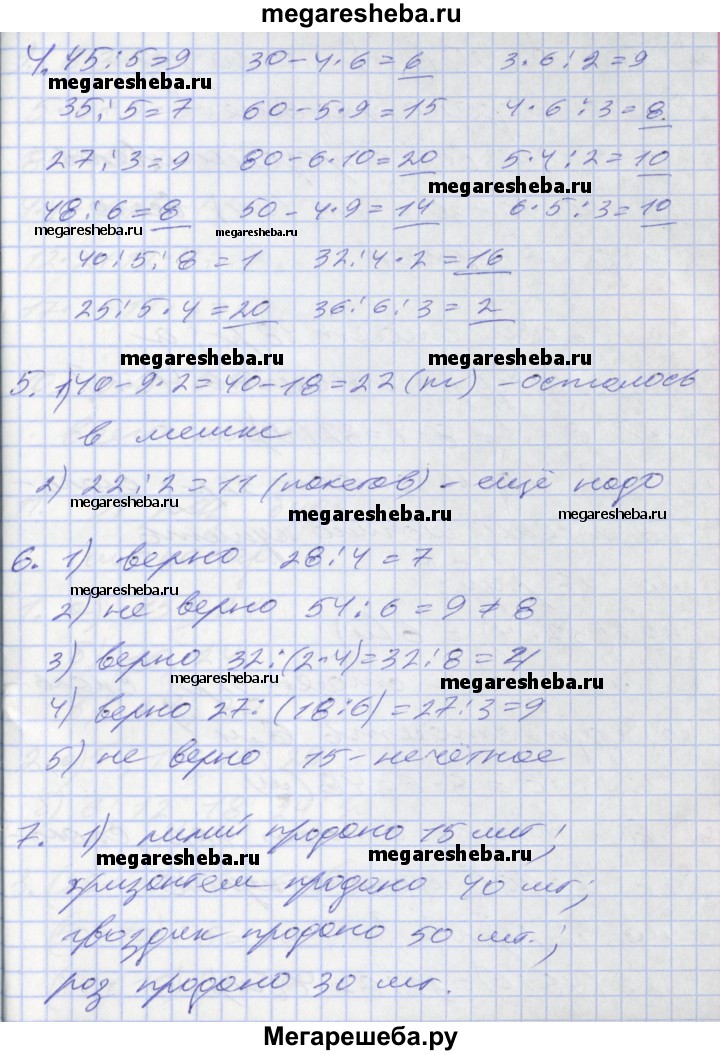 megaresheba.ru
4. 45:5=9 30-4·6=6 3·6:2=9
megaresheba.ru
35:5=7 60-5·9=15 4·6:3=8
27:3=9 80-6·10=20 5·4:2=10
megaresheba.ru
48:6=8 50-4·9=14 6·5:3=10
megaresheba.ru megaresheba.ru
40:5:8=1 32:4·2=16
25:5·4=20 36:6:3=2
megaresheba.ru megaresheba.ru
5. 1) 40-9·2=40-18=22 (кг) - осталось
в мешке
2) 22:2=11 (пакетов) - ещё надо
megaresheba.ru megaresheba.ru
6. 1) верно 28:4=7
megaresheba.ru
2) не верно 54:6=9≠8
3) верно 32:(2·4)=32:8=4
megaresheba.ru megaresheba.ru
4) верно 27:(18:6)=27:3=9
5) не верно 15-нечётное
7. 1) лилий продано 15 шт;
megaresheba.ru megaresheba.ru
хризантем продано 40 шт;
гвоздик продано 50 шт.;
роз продано 30 шт.
Мегарешеба.ру